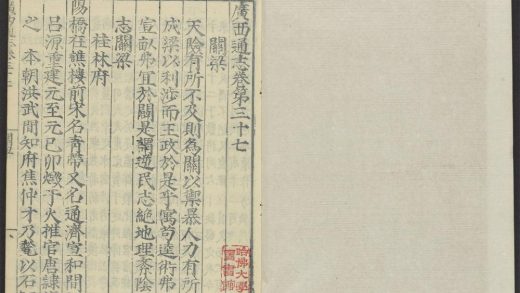 廣西通志卷第三十七
關梁
天險有所不及則為關以禦暴人力有所
成梁以利涉而王政於是乎寓苟違術弗
宣畝弗宜於關是謂逆民志絕地理
志關梁
桂林府
陽橋在譙樓前宋名青帶又名通濟宣和間
呂源重建元至元己卯燬于火推官唐隸
之 本朝洪武間知府焦仲才乃甃以石
哈佛大學
圖書館